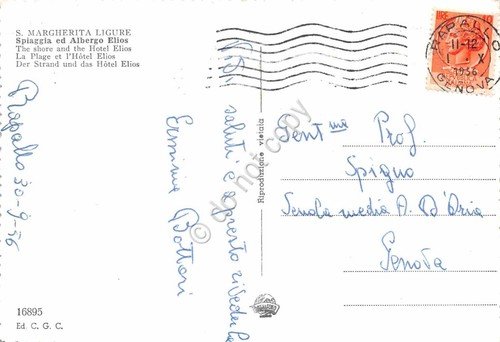 S. MARGHERITA LIGURE
Spiaggia ed Albergo Elios
The shore and the Hotel Elios
La Plage et l'Hôtel Elios
Der Strand und das Hôtel Elios
Rapallo 30-9-56
saluti e a presto rivederla
Erminia Bottari
Riproduzione vietata
16895
Ed. C. G. C.
LIRE 10
RAPALLO
11-12
1 X
1956
GENOVA
Gent ma Prof.
Spigno
Scuola media A. D'Oria
Genova
do not copy